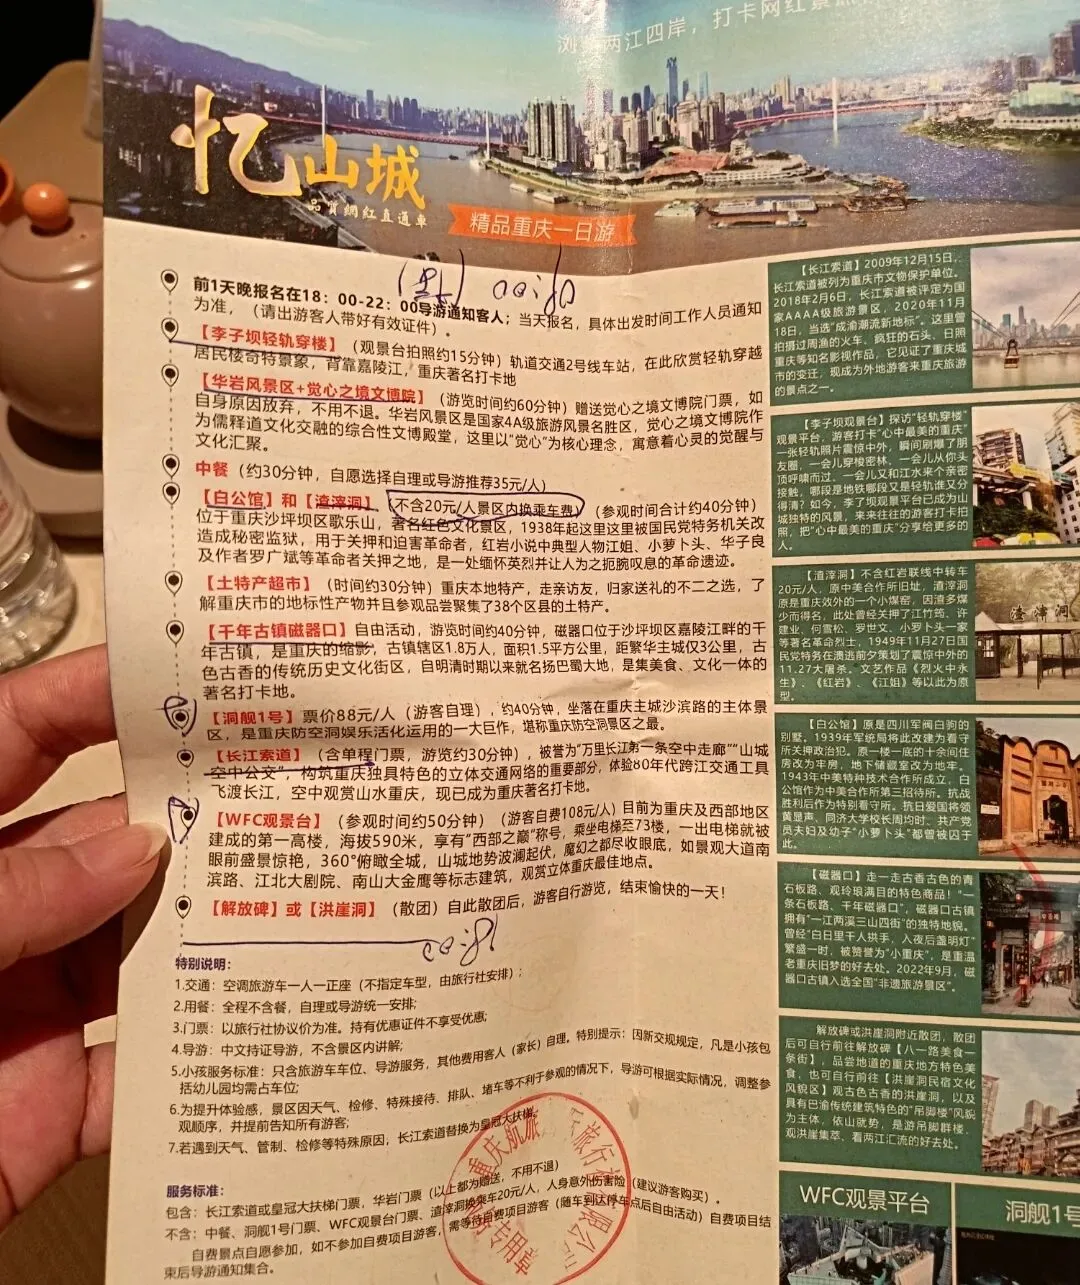 浏览两江四岸，打卡网红景
忆山城
品質網紅直通車
精品重庆一日游
前1天晚报名在18：00-22：00导游通知客人；当天报名，具体出发时间工作人员通知
为准，（请出游客人带好有效证件）。
【李子坝轻轨穿楼】（观景台拍照约15分钟）轨道交通2号线车站，在此欣赏轻轨穿越
居民楼奇特景象，背靠嘉陵江，重庆著名打卡地
【华岩风景区+觉心之境文博院】（游览时间约60分钟）赠送觉心之境文博院门票，如
自身原因放弃，不用不退。华岩风景区是国家4A级旅游风景名胜区，觉心之境文博院作
为儒释道文化交融的综合性文博殿堂，这里以"觉心"为核心理念，寓意着心灵的觉醒与
文化汇聚。
中餐（约30分钟，自愿选择自理或导游推荐35元/人）
【白公馆】和【渣滓洞】（不含20元/人景区内换乘车费）（参观时间合计约40分钟）
位于重庆沙坪坝区歌乐山，著名红色文化景区，1938年起这里这里被国民党特务机关改
造成秘密监狱，用于关押和迫害革命者，红岩小说中典型人物江姐、小萝卜头、华子良
及作者罗广斌等革命者关押之地，是一处缅怀英烈并让人为之扼腕叹息的革命遗迹。
【土特产超市】（时间约30分钟）重庆本地特产，走亲访友，归家送礼的不二之选，了
解重庆市的地标性产物并且参观品尝聚集了38个区县的土特产。
【千年古镇磁器口】自由活动，游览时间约40分钟，磁器口位于沙坪坝区嘉陵江畔的千
年古镇，是重庆的缩影，古镇辖区1.8万人，面积1.5平方公里，距繁华主城仅3公里，古
色古香的传统历史文化街区，自明清时期以来就名扬巴蜀大地，是集美食、文化一体的
著名打卡地。
【洞舰1号】票价88元/人（游客自理），约40分钟，坐落在重庆主城沙滨路的主体景
区，是重庆防空洞娱乐活化运用的一大巨作，堪称重庆防空洞景区之最。
【长江索道】（含单程门票，游览约30分钟），被誉为"万里长江第一条空中走廊""山城
空中公交"，构筑重庆独具特色的立体交通网络的重要部分，体验80年代跨江交通工具
飞渡长江，空中观赏山水重庆，现已成为重庆著名打卡地。
【WFC观景台】（参观时间约50分钟）（游客自费108元/人）目前为重庆及西部地区
建成的第一高楼，海拔590米，享有"西部之巅"称号，乘坐电梯至73楼，一出电梯就被
眼前盛景惊艳，360°俯瞰全城，山城地势波澜起伏，魔幻之都尽收眼底，如景观大道南
滨路、江北大剧院、南山大金鹰等标志建筑，观赏立体重庆最佳地点。
【解放碑】或【洪崖洞】（散团）自此散团后，游客自行游览，结束愉快的一天！
特别说明：
1.交通：空调旅游车一人一正座（不指定车型，由旅行社安排）；
2.用餐：全程不含餐，自理或导游统一安排；
3.门票：以旅行社协议价为准。持有优惠证件不享受优惠；
4.导游：中文持证导游，不含景区内讲解；
5.小孩服务标准：只含旅游车车位、导游服务，其他费用客人（家长）自理。特别提示：因新交规规定，凡是小孩包
括幼儿园均需占车位；
6.为提升体验感，景区因天气、检修、特殊接待、排队、堵车等不利于参观的情况下，导游可根据实际情况，调整参
观顺序，并提前告知所有游客；
7.若遇到天气、管制、检修等特殊原因，长江索道替换为皇冠大扶梯。
服务标准：
包含：长江索道或皇冠大扶梯门票，华岩门票（以上都为赠送，不用不退）
不含：中餐、洞舰1号门票、WFC观景台门票、渣滓洞换乘车20元/人，人身意外伤害险（建议游客购买）。
自费景点自愿参加，如不参加自费项目游客，需等待自费项目游客（随车到达停车点后自由活动）自费项目结
束后导游通知集合。
【长江索道】2009年12月15日，
长江索道被列为重庆市文物保护单位。
2018年2月6日，长江索道被评定为国
家AAAA级旅游景区，2020年11月
18日，当选"成渝潮流新地标"。这里曾
拍摄过周渔的火车、疯狂的石头、日照
重庆等知名影视作品，它见证了重庆城
市的变迁，现成为外地游客来重庆旅游
的景点之一。
【李子坝观景台】探访"轻轨穿楼"
观景平台，游客打卡"心中最美的重庆"
一张轻轨照片震惊中外，瞬间刷爆了朋
友圈，一会儿穿梭密林，一会儿从你头
顶呼啸而过，一会儿又和江水来个亲密
接触，哪段是地铁哪段又是轻轨谁又分
得清？如今，李了坝观景平台已成为山
城独特的风景，来来往往的游客打卡拍
照，把"心中最美的重庆"分享给更多的
人。
【渣滓洞】不含红岩联线中转车
20元/人，原中美合作所旧址，渣滓洞
原是重庆效外的一个小煤窑，因渣多煤
少而得名，此处曾经关押了江竹筠、许
建业、何雪松、罗世文、小萝卜头一家
等著名革命烈士，1949年11月27日国
民党特务在溃逃前夕策划了震惊中外的
11.27大屠杀。文艺作品《烈火中永
生》、《红岩》、《江姐》等以此为原
型。
渣滓洞
【白公馆】原是四川军阀白驹的
别墅。1939年军统局将此改建为看守
所关押政治犯。原一楼一底的十余间住
房改为牢房，地下储藏室改为地牢。
1943年中美特种技术合作所成立，白
公馆作为中美合作所第三招待所。抗战
胜利后作为特别看守所。抗日爱国将领
黄显声、同济大学校长周均时、共产党
员夫妇及幼子"小萝卜头"都曾被囚于
此。
【磁器口】走一走古香古色的青
石板路、观玲琅满目的特色商品！"一
条石板路、千年磁器口"，磁器口古镇
拥有"一江两溪三山四街"的独特地貌。
曾经"白日里千人拱手，入夜后盏明灯"
繁盛一时，被赞誉为"小重庆"，是重温
老重庆旧梦的好去处。2022年9月，磁
器口古镇入选全国"非遗旅游景区"。
解放碑或洪崖洞附近散团，散团
后可自行前往解放碑【八一路美食一
条街】，品尝地道的重庆地方特色美
食，也可自行前往【洪崖洞民宿文化
风貌区】观古色古香的洪崖洞，以及
具有巴渝传统建筑特色的"吊脚楼"风貌
为主体，依山就势，是游吊脚群楼、
观洪崖集萃、看两江汇流的好去处。
WFC观景平台
洞舰1号